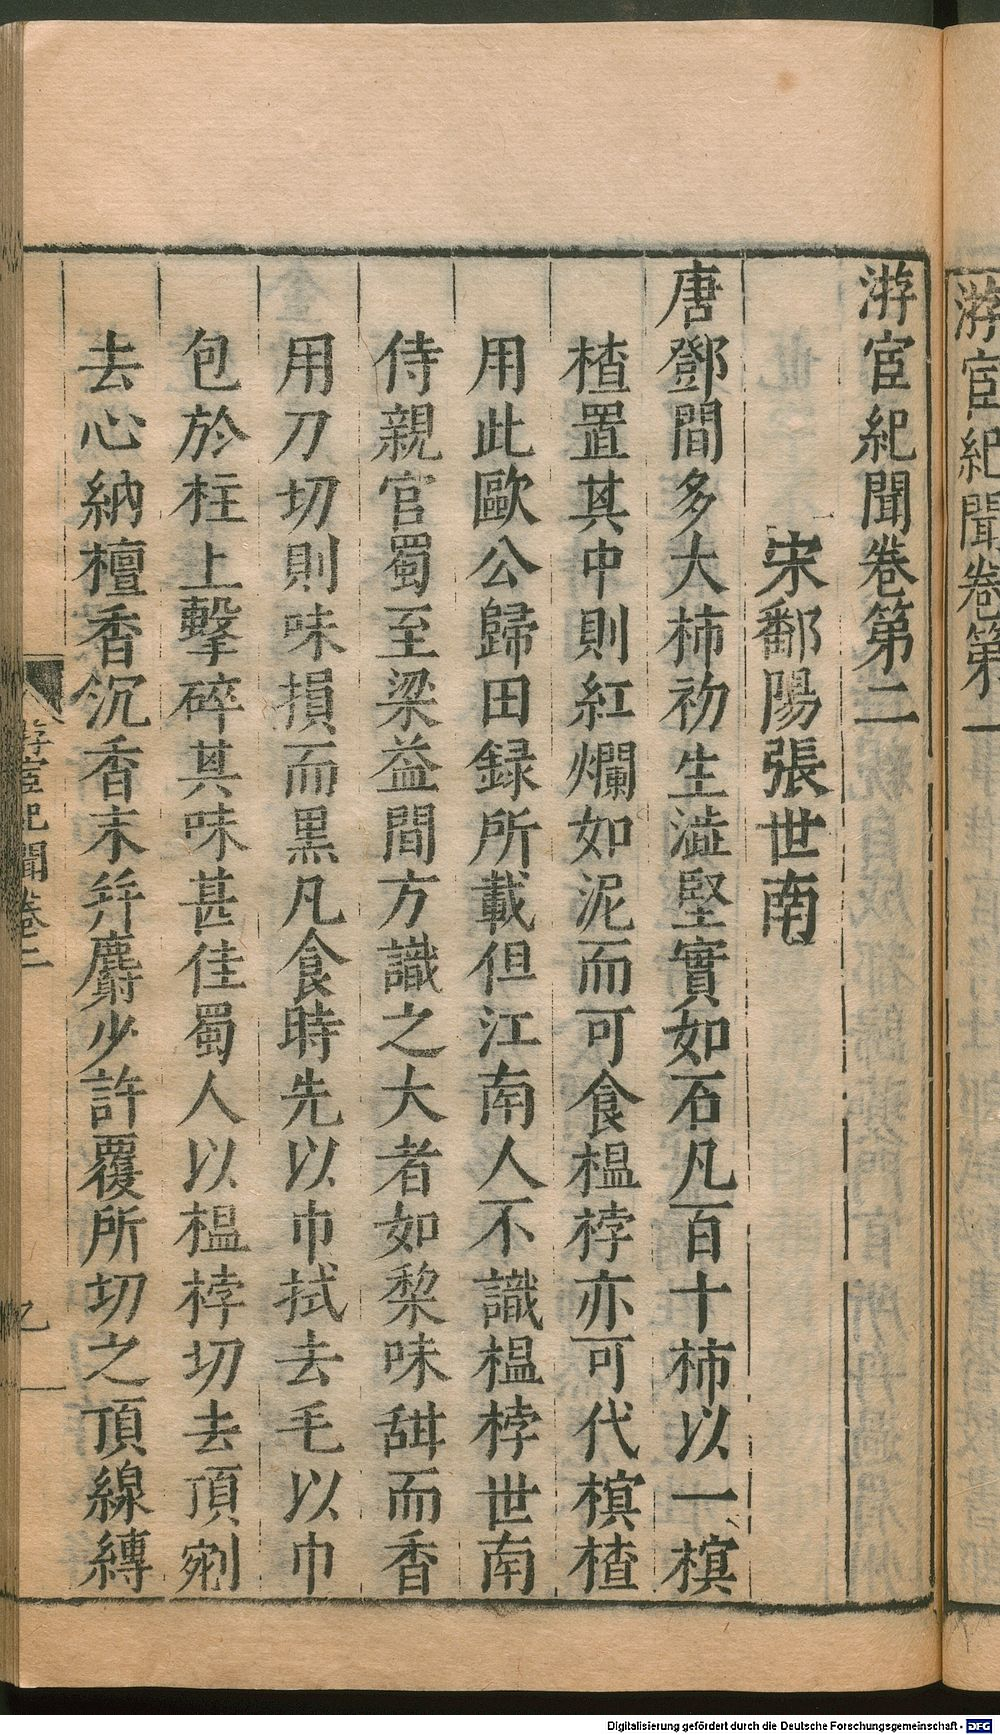 游宦紀聞卷第一
游宦紀聞卷第二
宋鄱陽張世南
唐鄧間多大柿初生澁堅實如石凡百十柿以一榠
楂置其中則紅爛如泥而可食榲桲亦可代榠楂
用此歐公歸田録所載但江南人不識榲桲世南
侍親官蜀至梁益間方識之大者如棃味甜而香
用刀切則味損而黒凡食時先以巾拭去毛以巾
包於柱上擊碎其味甚佳蜀人以榲桲切去頂剜
去心納檀香沉香末并麝少許覆所切之頂線縛
游宦紀聞卷二
Digitalisierung gefördert durch die Deutsche Forschungsgemeinschaft - DFG